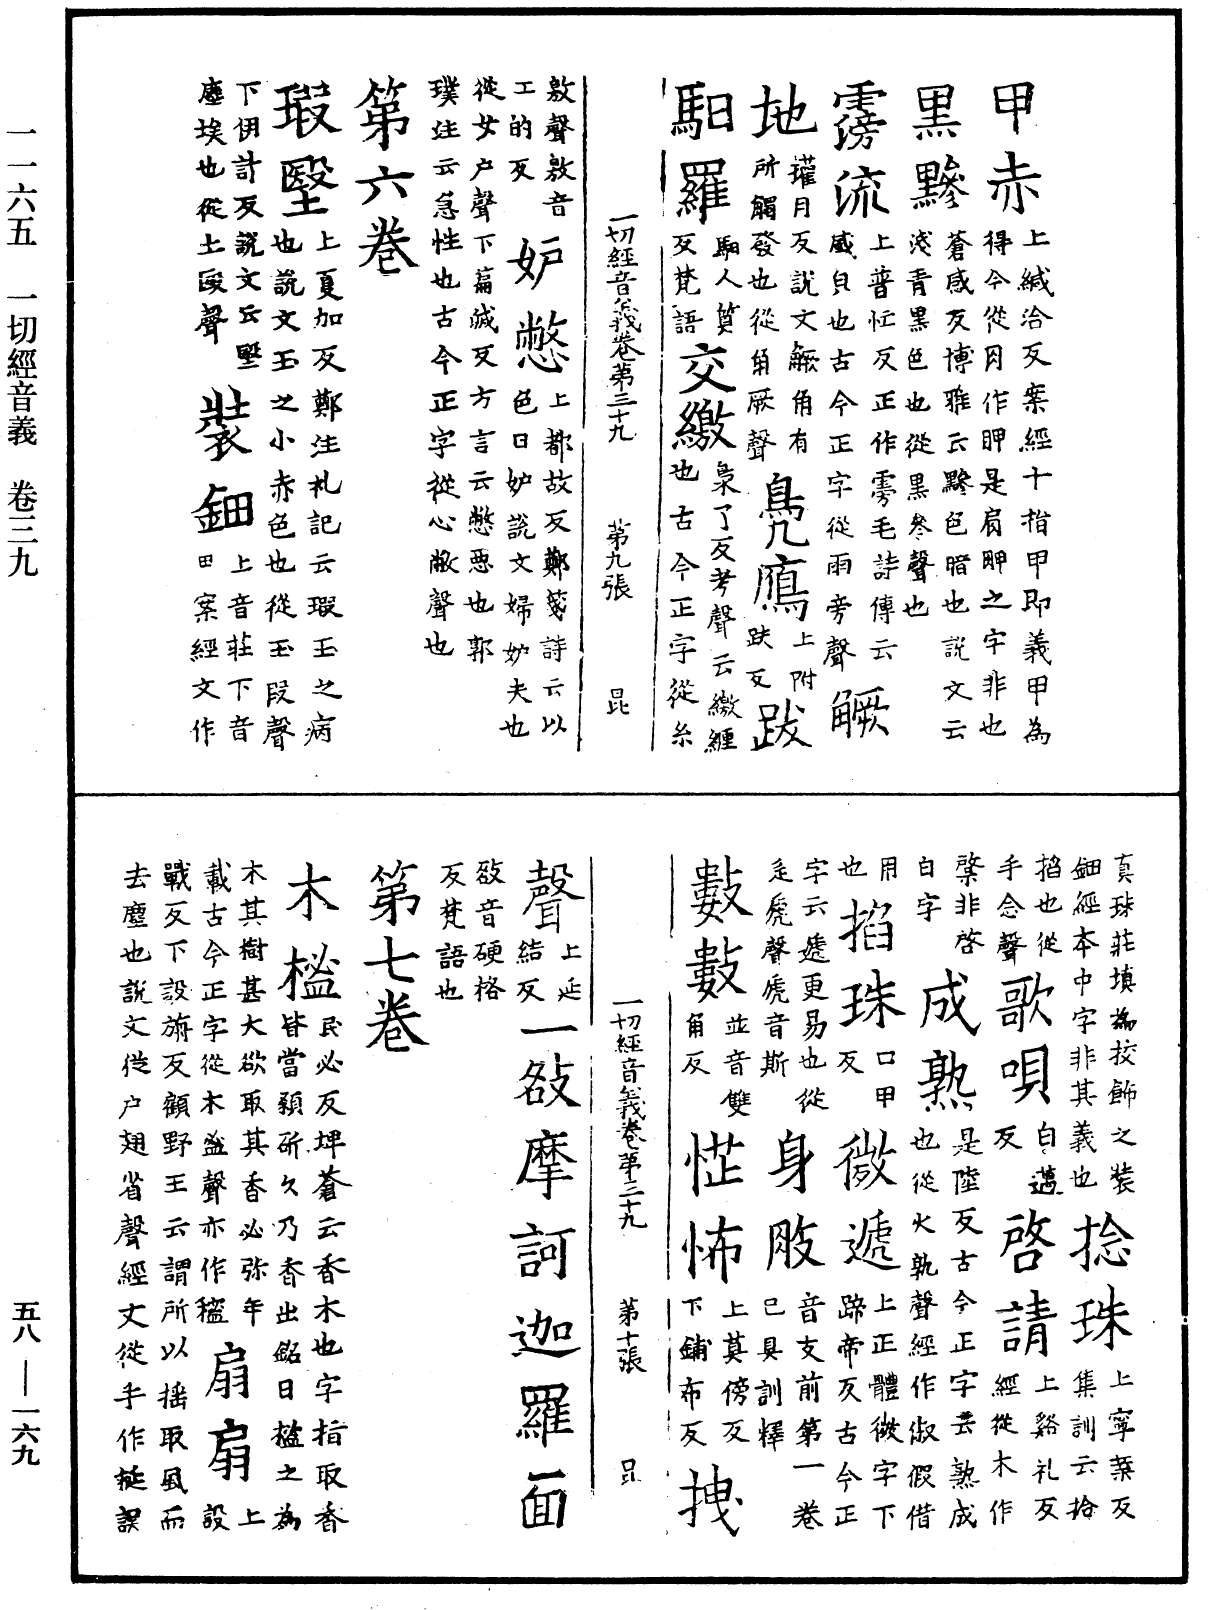 一一六五　一切經音義　卷三九
甲赤上緘洽反案經十指甲即義甲為
得今從月作胛是肩胛之字非也
黑黲蒼感反博雅云黲色暗也說文云
淺青黑色也從黒叅聲也
霶流上普忙反正作雱毛詩傳云
盛皃也古今正字從雨旁聲
觼地㩴月反說文觼角有
所觸發也從角厥聲
鳧鴈上附
趺反
跋
馹羅馹人質
反梵語
交繳梟了反考聲云繳纏
也古今正字從糸
一切經音義卷第三十九　第九張　昆
敫聲敫音
工的反
妒憋上都故反鄭箋詩云以
色曰妒說文婦妒夫也
從女户聲下萹滅反方言云憋惡也郭
璞注云急性也古今正字從心敝聲也
第六卷
瑕堅上夏加反鄭注礼記云瑕玉之病
也說文玉之小赤色也從玉叚聲
下伊計反說文云堅
塵埃也從土殹聲
裝鈿上音莊下音
田案經文作
真珠莊填為挍飾之裝
鈿經本中字非其義也
捻珠上寧葉反
集訓云捻
掐也從
手念聲
歌唄白邁
反
啓請上谿礼反
經從木作
棨非啓
白字
成熟是陸反古今正字云熟成
也從火孰聲經作俶假借
用
也
掐珠口甲
反
微遞上正體微字下
蹄帝反古今正
字云遞更易也從
辵虒聲虒音斯
身肢音支前第一卷
已具訓釋
數數並音雙
角反
恾怖上莫傍反
下鋪布反
拽
一切經音義卷第三十九　第十張　昆
聲上延
結反
一敆摩訶迦羅面
敆音硬格
反梵語也
第七卷
木榓民必反埤蒼云香木也字指取香
皆當預斫久乃香出銘曰榓之為
木其樹甚大欲取其香必弥年
載古今正字從木𥁑聲亦作櫁
扇扇上
設
戰反下設旃反顧野王云謂所以揺取風而
去塵也說文從户翅省聲經文從手作挻誤
五八—一六九